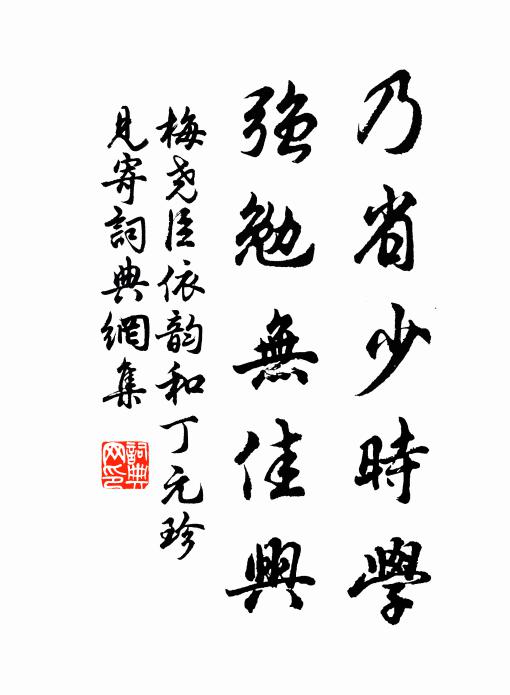 乃省少時學
強勉無佳興
梅尧臣依韵和丁元珍
見寄詞典網集
詞典网印